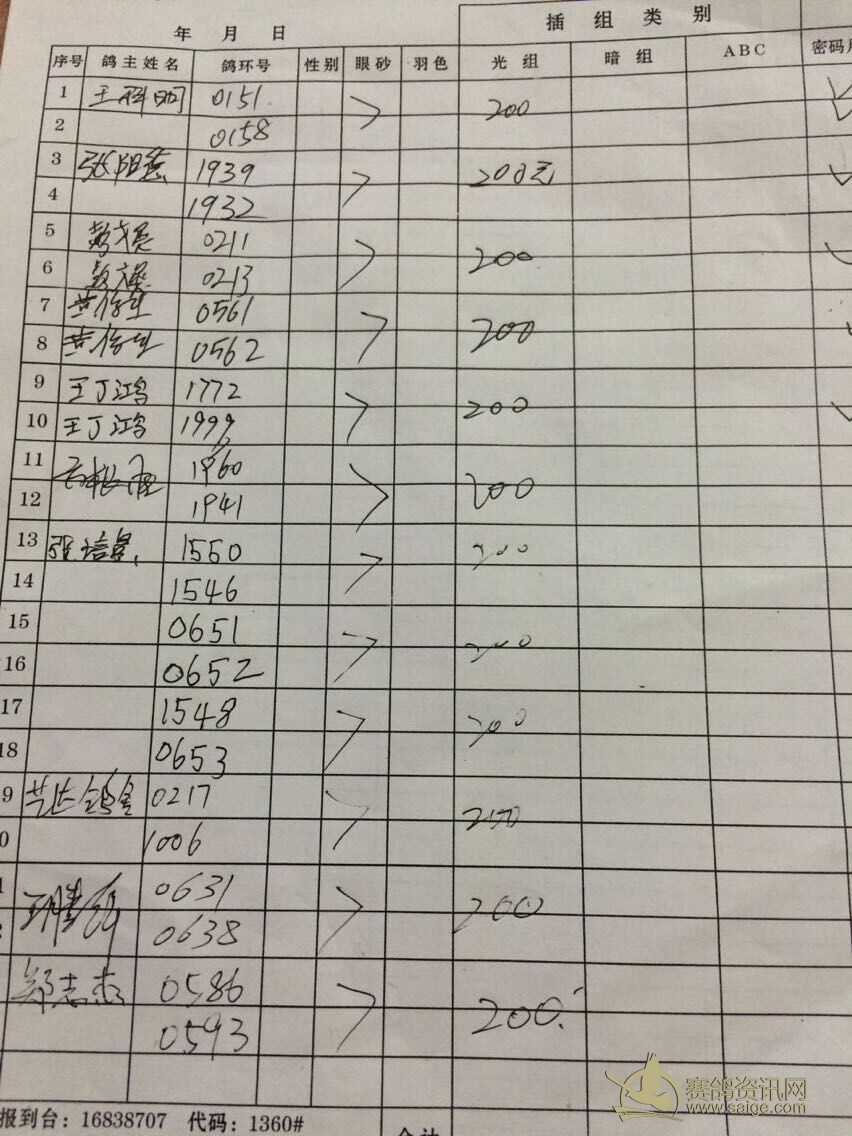 年 月 日 插 组 类 别
序号 鸽主姓名 鸽环号 性别 眼砂 羽色 光组 暗组 ABC 密码
1 0151 200
2 0158
3 张阳 1939 200元
4 1932
5 0211 200
6 0213
7 0561
8 0562 200
9 王丁鸿 1772 200
10 王丁鸿 1999
11 1960
12 1941 200
13 张培星 1550 200
14 1546
15 0651 200
16 0652
17 1548 200
18 0653
9 0217 200
0 1006
0631 200
0638
郑志杰 0586 200
0593
报到台：16838707 代码：1360#
合计
赛鸽资讯网
www.saige.com